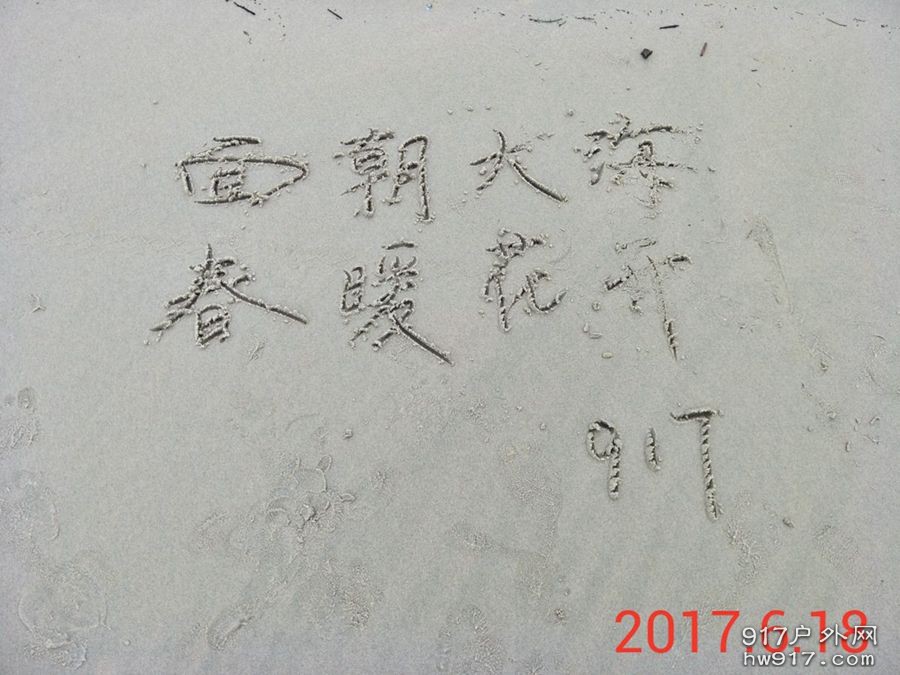 面朝大海
春暖花开
917
2017.6.18
917户外网
hw917.com